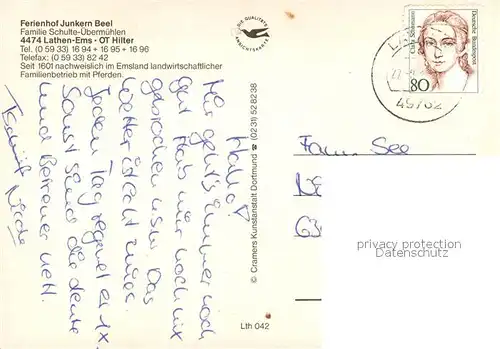 Ferienhof Junkern Beel
Familie Schulte-Übermühlen
4474 Lathen-Ems - OT Hilter
Tel. (0 59 33) 16 94 + 16 95 + 16 96
Telefax: (0 59 33) 82 42
Seit 1601 nachweislich im Emsland landwirtschaftlicher
Familienbetrieb mit Pferden.
DIE QUALITÄTS
ANSICHTSKARTE
Clara Schumann
Deutsche Bundespost
80
Hallo!
Mir geht's immer noch
gut. Hab mir noch nix
gebrochen usw. Das
Wetter ist echt
Jeden Tag regnet es 1x
Sonst sind die Leute
und Betreuer nett.
© Cramers Kunstanstalt Dortmund ☎ (0231) 528238
Lth 042
Fam. See
63
privacy protection
Datenschutz